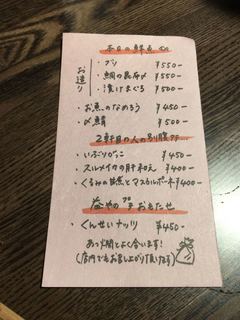 本日の鮮魚
お造り
・ブリ ¥550-
・鯛の昆布〆 ¥550-
・漬けまぐろ ¥500-
・お魚のなめろう ¥450-
・〆鯖 ¥500-
2軒目の人の別腹
・いぶりがっこ ¥450-
・スルメイカの肝和え ¥400-
・くるみの味噌とマスカルポーネ ¥400-
プチおもたせ
・くんせいナッツ ¥400-
あつ燗とよく合います!
(店内でもお召し上がり頂けます)